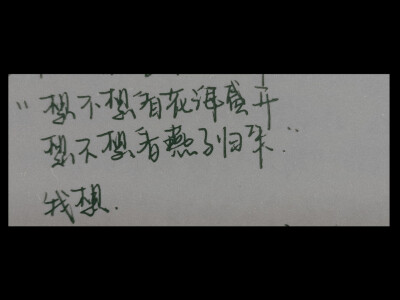 “想不想看花海盛开
想不想看燕子归来”
我想.